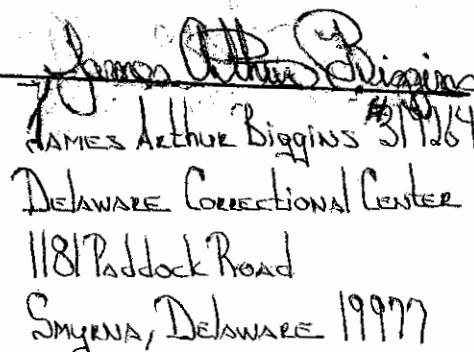 James Arthur Biggins
JAMES ARTHUR Biggins #319264
DELAWARE CORRECTIONAL CENTER
1181 Paddock Road
SMYRNA, DELAWARE 19977